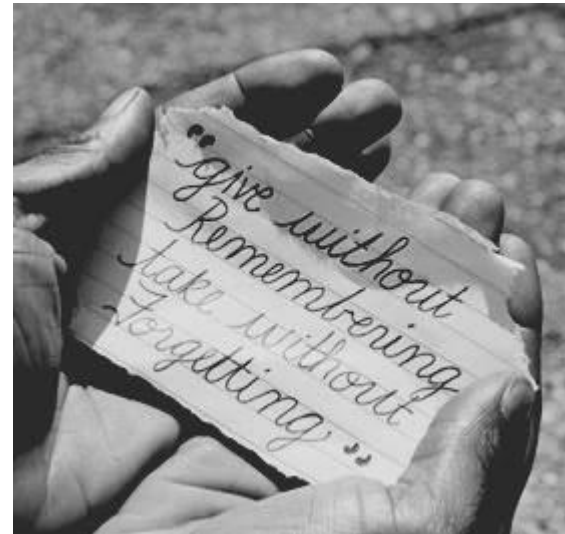 "give without
Remembering
take without
Forgetting."